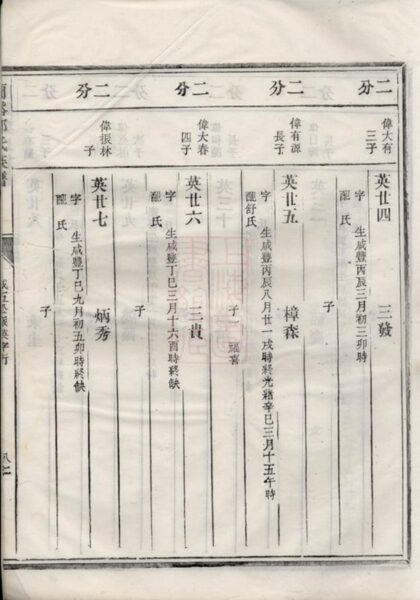 二分
偉大有
三子
英廿四 三發
字 生咸豐丙辰三月初三卯時
配 氏
子
二分
偉有源
長子
英廿五 樟森
字 生咸豐丙辰八月廿一戌時終光緒辛巳三月十五午時
配舒氏
子 福喜
二分
偉大春
四子
英廿六 三貴
字 生咸豐丁巳三月十六酉時終缺
配 氏
子
二分
偉振林
子
英廿七 炳秀
字 生咸豐丁巳九月初五卯時終缺
配 氏
子